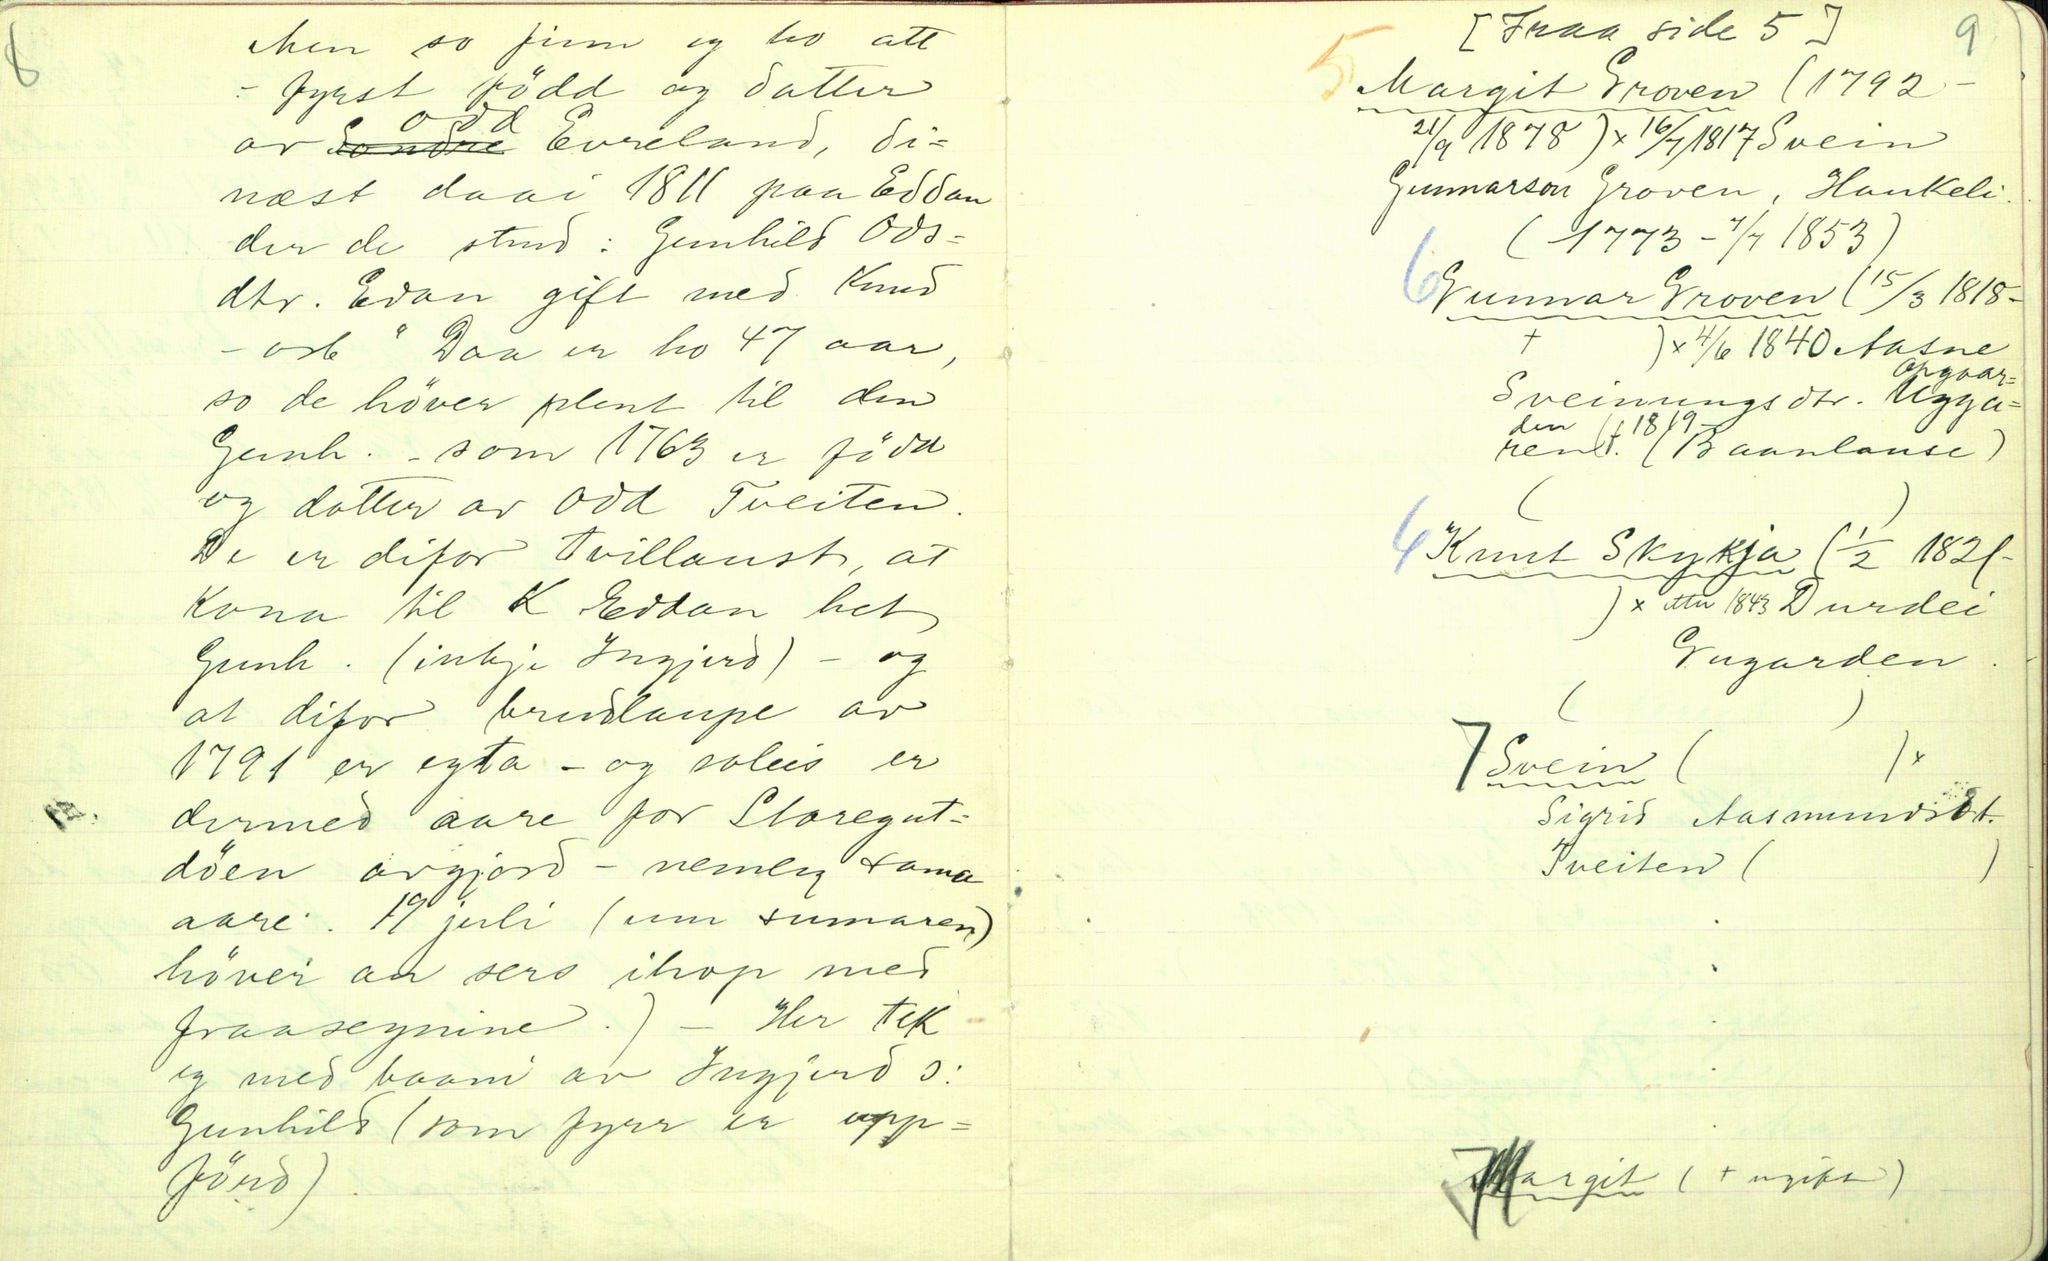 8
Men so finn eg ho att
- fyrst född og datter
Odd
av Sondre Evreland, di=
næst daai 1811 paa Eddan
der de stend: Gunhild Ods=
dtr. Edan gift med Knud
- osb " Daa er ho 47 aar,
so de höver plent til den
Gunh. - som 1763 er född
og datter av Odd Tveiten.
De er difor tvillaust, at
kona til K Eddan het
Gunh. (inkje Ingjerd) - og
at difor brudlaupe av
1791 er egta - og soleis er
dermed aare for Storegut=
döen avgjord - nemleg sama
aare. 19 juli (um sumaren)
höver au sers ihop med
fraasegnine.) - Her tek
eg med baani av Ingjerd ɔ:
Gunhild (som fyrr er upp=
förd)
9
[Fraa side 5]
5 Margit Groven (1792 -
21/9 1878) x 16/7 1817 Svein
Gunnarson Groven, Haukeli.
(1773 - 7/7 1853)
6 Gunnar Groven (15/3 1818-
+ ) x 4/6 1840 Aasne
Sveinungsdtr.
den (f. 1819-
(Baanlause)
( )
6 Knut Skykja (1/2 1821-
) x etter 1843 Durdei
Gugarden.
( )
7 Svein ( ) x
Sigrid Aasmundsdt.
Tveiten ( )
7 Margit (+ ugift)